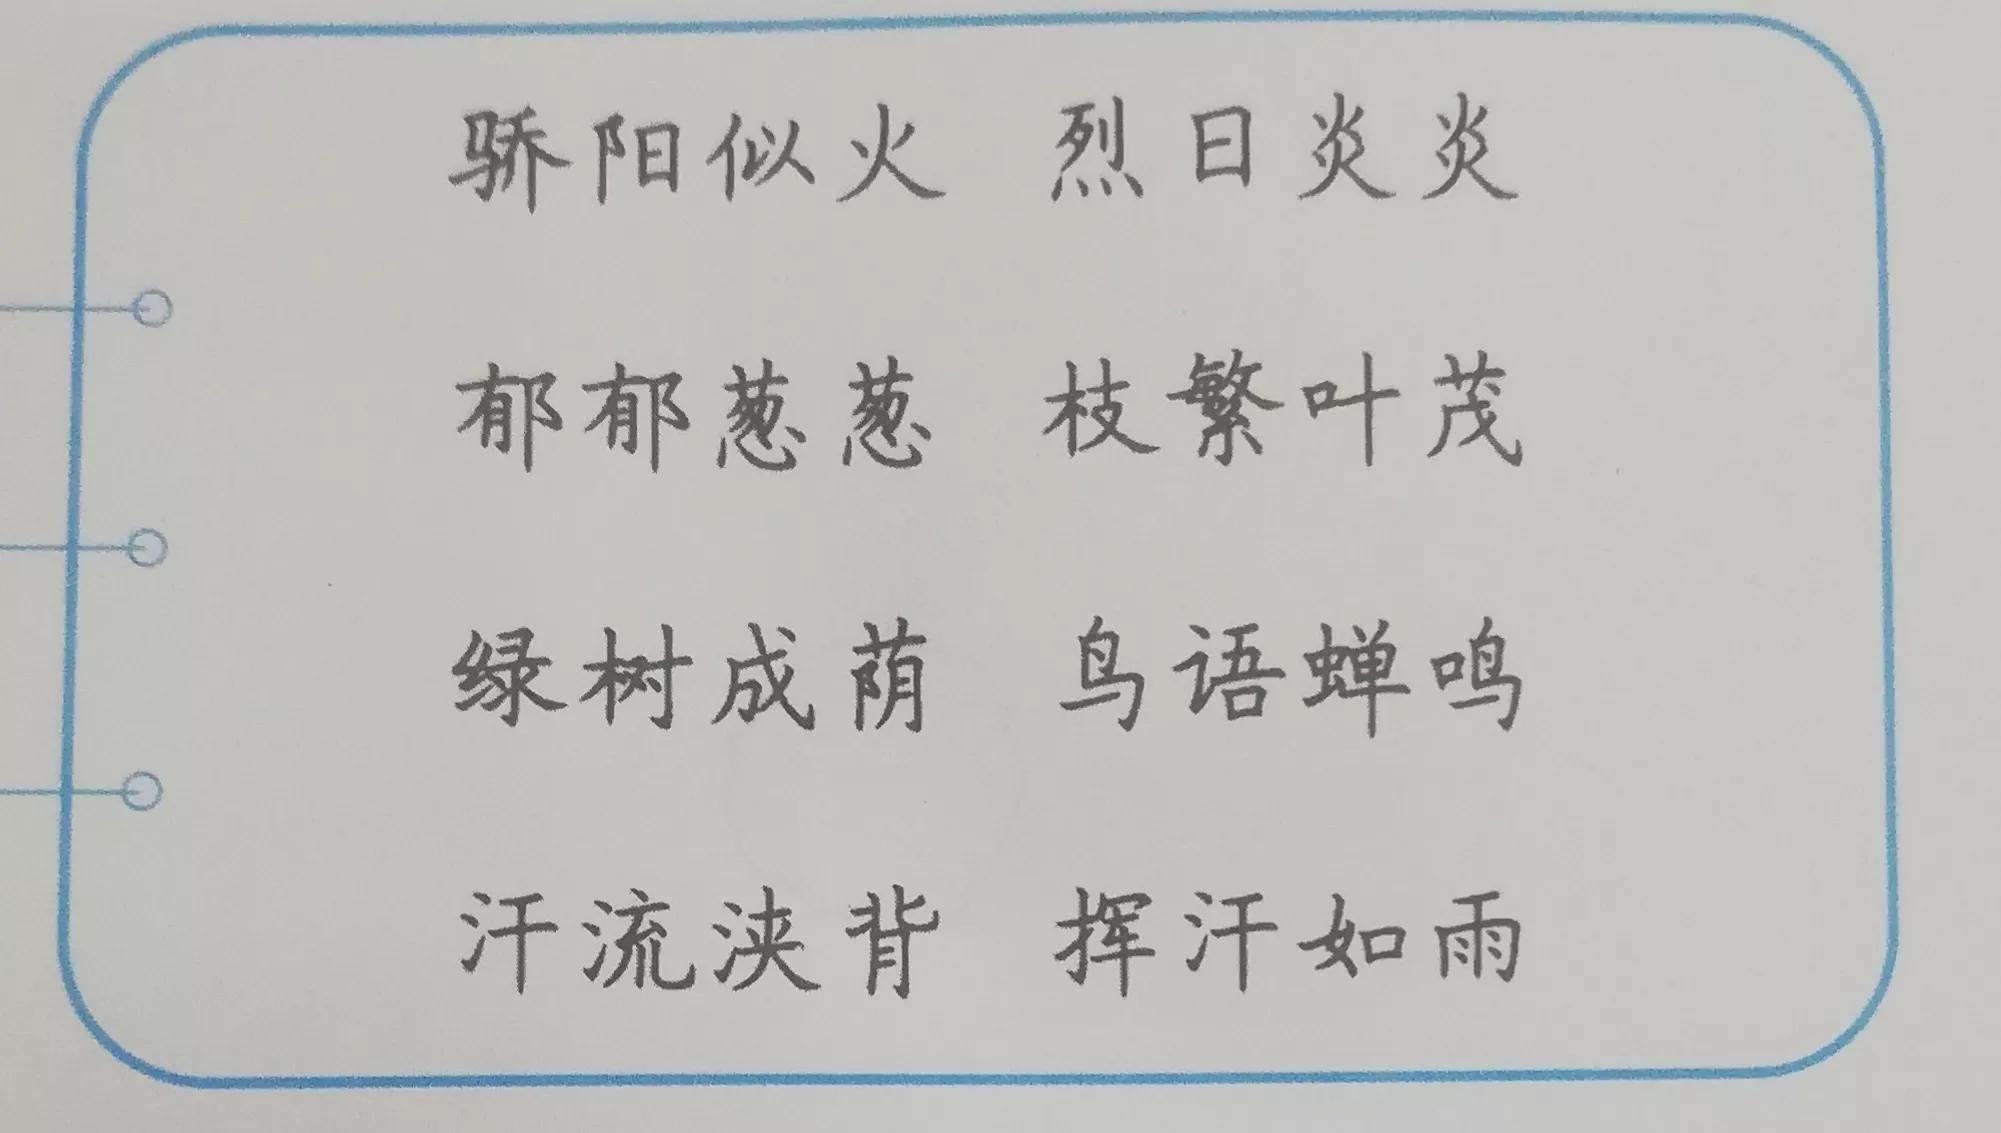 骄阳似火 烈日炎炎
郁郁葱葱 枝繁叶茂
绿树成荫 鸟语蝉鸣
汗流浃背 挥汗如雨